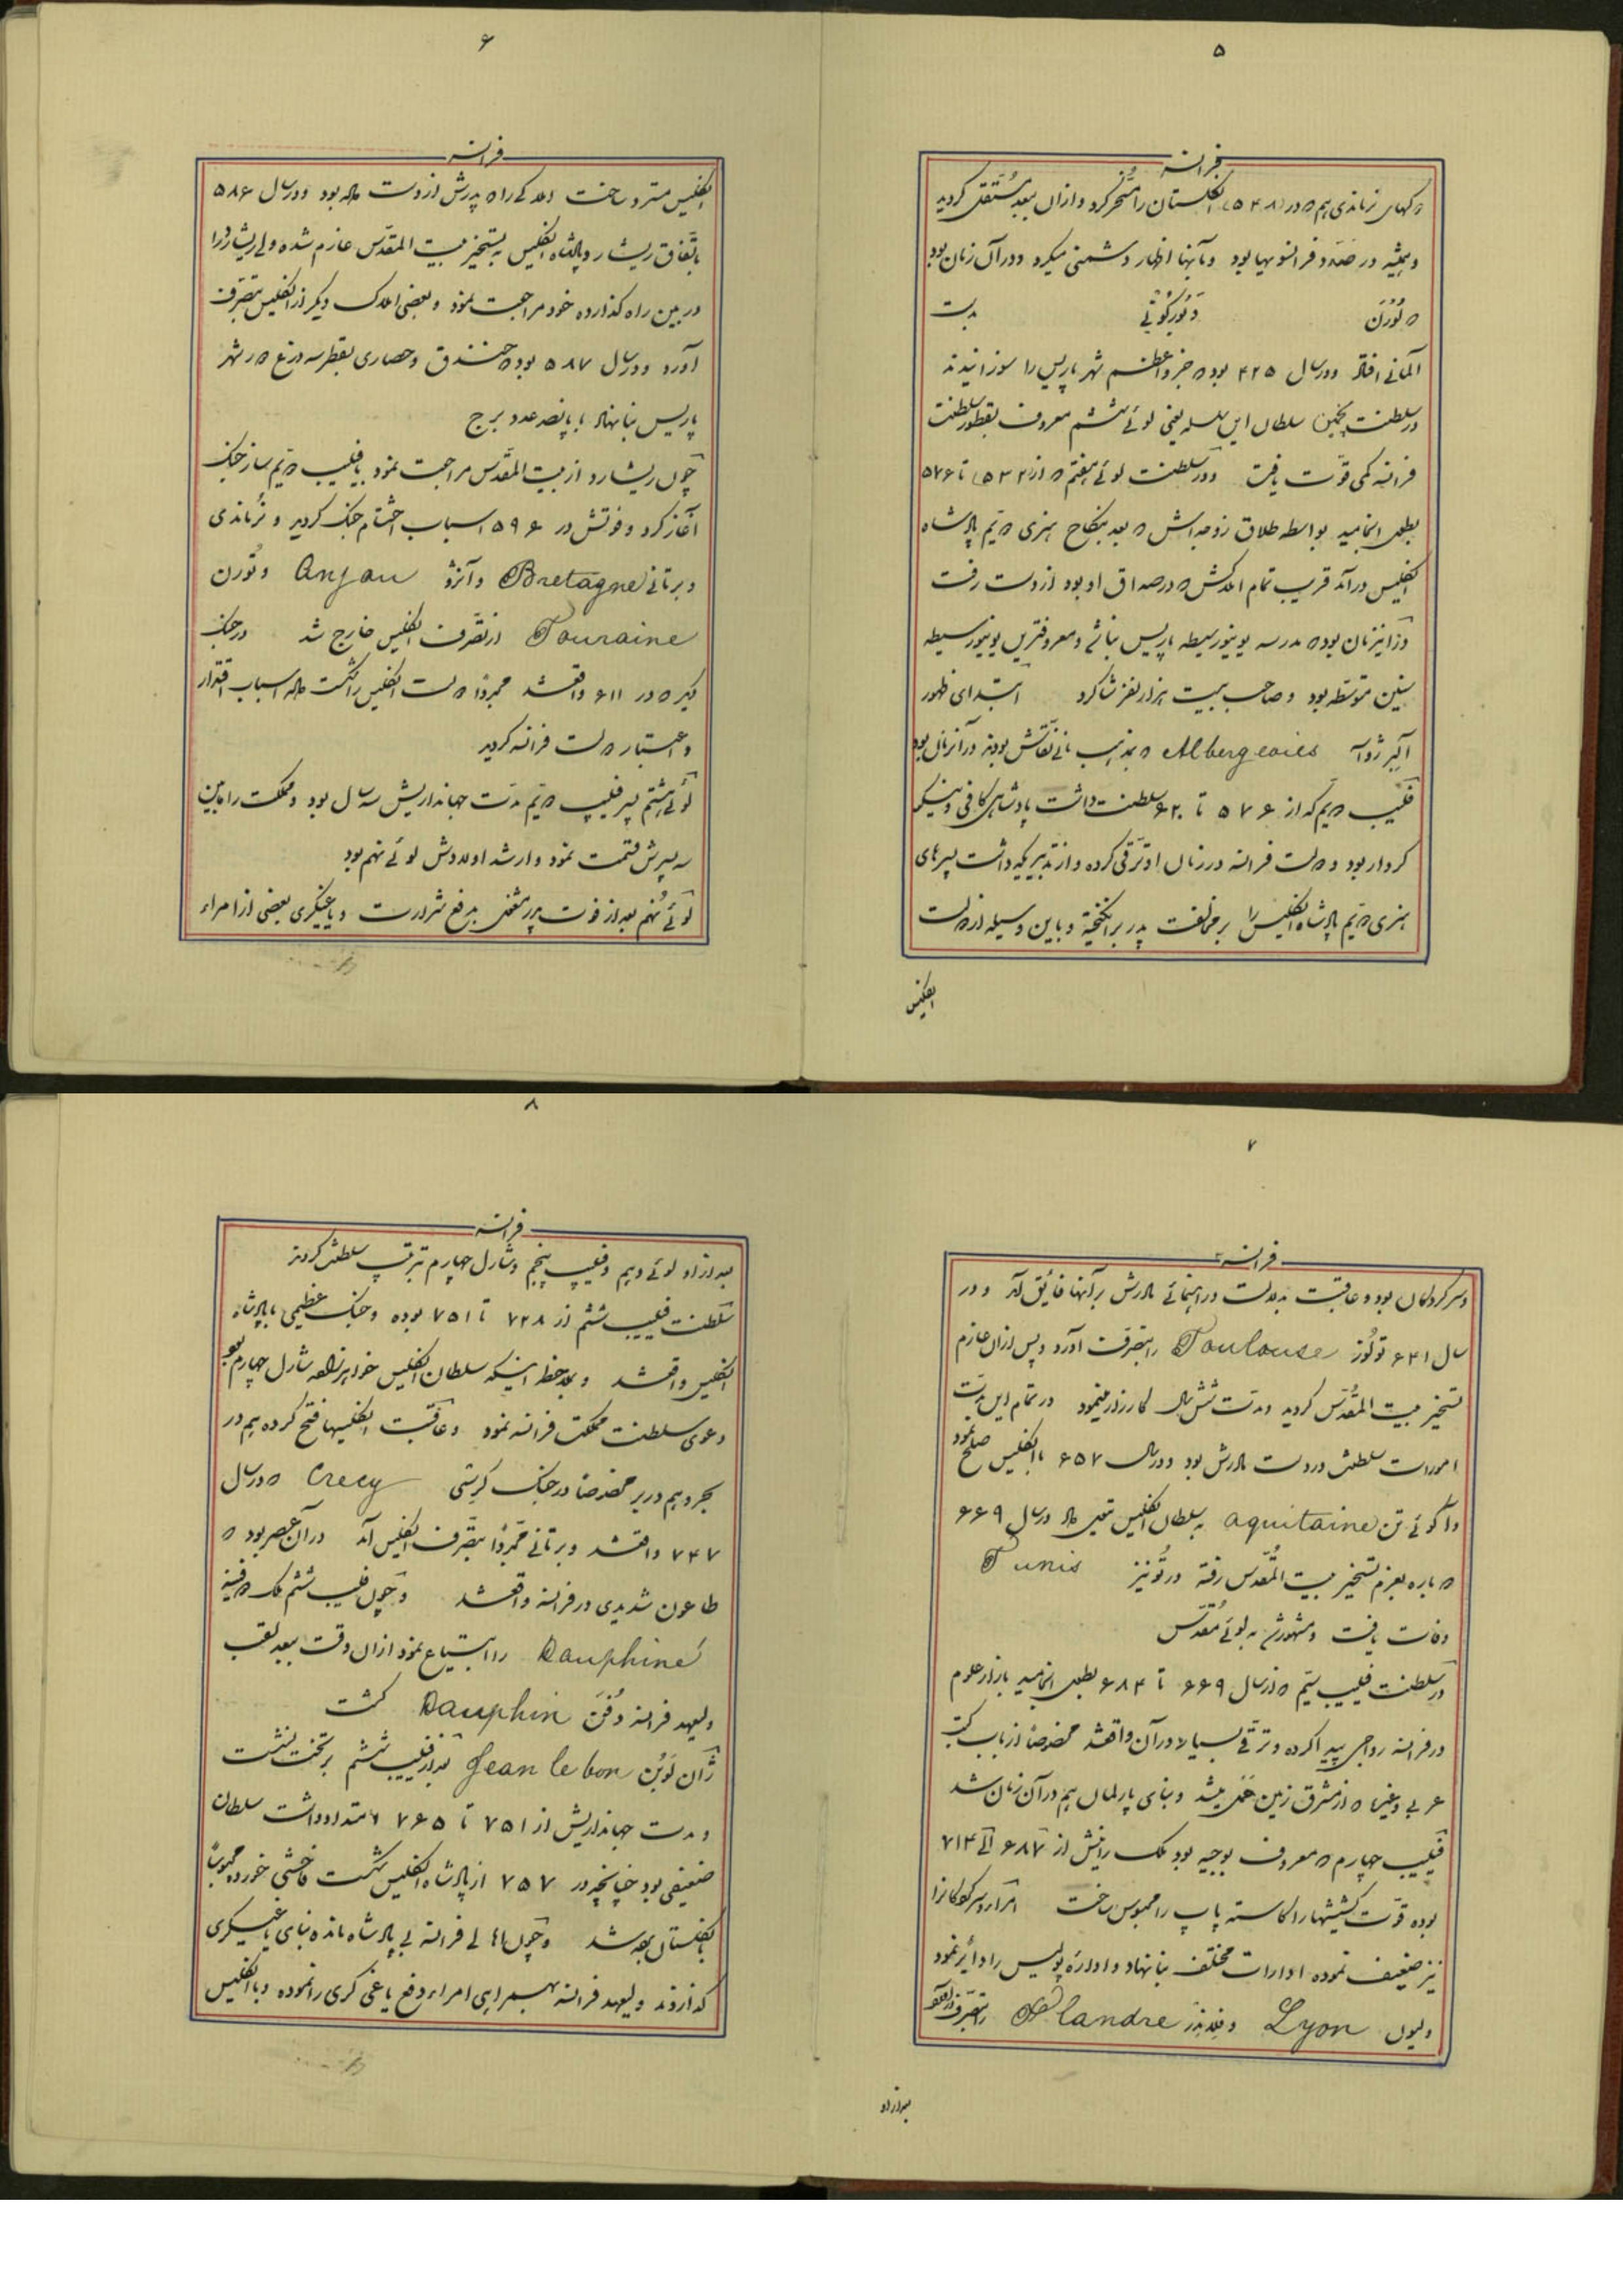 ۵
فرانسه
در (۵۴۸) انگلستان را مسخر کرد و ازان ببعد مستقل گردید
و همیشه در صدد فرانسویها بود و بآنها اظهار دشمنی میکرد و در آن زمان بود
که تُورَن دست
آلمانی افتاد و در سال ۴۲۵ بود که جزو اعظم شهر پاریس را سوزانیدند
در سلطنت پنجمین سلطان این سلسله یعنی لوئی ششم معروف سلطنت
فرانسه کمی قوّت یافت و در سلطنت لوئی هفتم که از (۵۳۲) تا ۵۷۶
بطول انجامید بواسطه طلاق زوجه‌اش که بعد بنکاح هنری دویم پادشاه
انگلیس درآمد قریب تمام املاکش که در صداق او بود از دست رفت
و در اینزمان بود که مدرسه یونیورسیطه پاریس بنا شد و معروفترین یونیورسیطه
سنین متوسّطه بود و صاحب بیست هزار نفر شاگرد ابتدای ظهور
آلبیژوا Albergeoies که بمذهب مانی نقاش بودند در آنزمان بود
فلیپ دویم که از ۵۷۶ تا ۶۲۰ سلطنت داشت پادشاهی کافی و نیکو
کردار بود و دولت فرانسه در زمان او ترقی کرده و از تدبیریکه داشت پسرهای
هنری دویم پادشاه انگلیس را بر مخالفت پدر برانگیخته و باین وسیله از دولت
انگلیس
۶
فرانسه
انگلیس مسترد ساخت املاکی را که پدرش از دست داده بود و در سال ۵۸۶
باتّفاق ریشارد پادشاه انگلیس به تسخیر بیت المقدّس عازم شده ولی ریشارد را
در بین راه گذارده خود مراجعت نمود و بعضی املاک دیگر از انگلیس بتصرف
آورد و در سال ۵۸۷ بود که خندق و حصاری بقطر سه ذرع در شهر
پاریس بنا نهاد با پانصد عدد برج
چون ریشارد از بیت المقدّس مراجعت نمود با فلیپ دویم ساز جنگ
آغاز کرد و فوتش در ۵۹۶ اسباب اختتام جنگ گردید و نُرماندی
و برتانی Bretagne و آنژو Anjou و تورن
Touraine از تصرف انگلیس خارج شد در جنگ
دیگر که در ۶۱۱ واقعشد مجدداً دولت انگلیس را شکست داده اسباب اقتدار
و اعتبار دولت فرانسه گردید
لوئی هشتم پسر فلیپ دویم مدّت جهانداریش سه سال بود و مملکت را مابین
سه پسرش قسمت نمود و ارشد اولادش لوئی نهم بود
لوئی نُهم بعد از فوت پدر مشغول بدفع شرارت و یاغیگری بعضی از امراء
۷
فرانسه
و سرکردگان بود و عاقبت بدلالت و راهنمائی مادرش بر آنها فایق آمد و در
سال ۶۴۱ تولُوز Toulouse را بتصرف آورد و پس از آن عازم
تسخیر بیت المقدّس گردید و مدت شش سال کارزار مینمود در تمام این مدّت
امورات سلطنتش در دست مادرش بود و در سال ۶۵۷ با انگلیس صلح نمود
و آکوئی تن aquitaine به سلطان انگلیس داد در سال ۶۶۹
دوباره بعزم تسخیر بیت المقدّس رفته در تُونیز Tunis
وفات یافت و مشهور شد به لوئی مُقدّس
در سلطنت فلیپ سیّم که از سال ۶۶۹ تا ۶۸۴ بطول انجامید بازار علوم
در فرانسه رواجی پیدا کرده و ترقی بسیار در آن واقعشد مخصوصاً از باب کتب
عربی و غیره که از مشرق زمین حمل میشد و بنای پارلمان هم در آن زمان شد
فلیپ چهارم که معروف بوجیه بود ملک رانیش از ۶۸۷ الی ۷۱۴
بوده قوّت کشیشها را کاسته پاپ را محبوس ساخت امراء و سرکردگانرا
نیز ضعیف نموده ادارات مختلف بنا نهاد و اداره پولیس را دائر نمود
و لیون Lyon و فلاندر Flandre را بتصرف
بعد از او
۸
فرانسه
بعد از او لوئی دهم و فلیپ پنجم و شارل چهارم بترتیب سلطنت کردند
سلطنت فلیپ ششم از ۷۲۸ تا ۷۵۱ بوده و جنگ عظیمی با پادشاه
انگلیس واقعشد و بملاحظه اینکه سلطان انگلیس خواهرزاده شارل چهارم بود
دعوی سلطنت مملکت فرانسه نمود و عاقبت انگلیسها فتح کرده هم در
بحر و هم در بر مخصوصاً در جنگ کرسّی Crecy که در سال
۷۴۷ واقعشد و برتانی مجدداً بتصرف انگلیس آمد در آن عصر بود که
طاعون شدیدی در فرانسه واقعشد و چون فلیپ ششم ملک دوفینه
Dauphiné را ابتیاع نمود از آن وقت ببعد لقب
ولیعهد فرانسه دُفَن Dauphin گشت
ژان لوبُن Jean le bon بعد از فلیپ ششم بر تخت نشست
و مدت جهانداریش از ۷۵۱ تا ۷۶۵ امتداد داشت سلطان
ضعیفی بود چنانچه در ۷۵۷ از پادشاه انگلیس شکست فاحشی خورده محبوساً
بانگلستان برده شد و چون اهالی فرانسه بی پادشاه مانده بنای یاغیگری
گذاردند ولیعهد فرانسه بهمراهی امراء دفع یاغی گری را نموده و با انگلیس